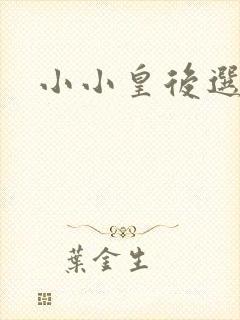 小小皇後選
葉金生